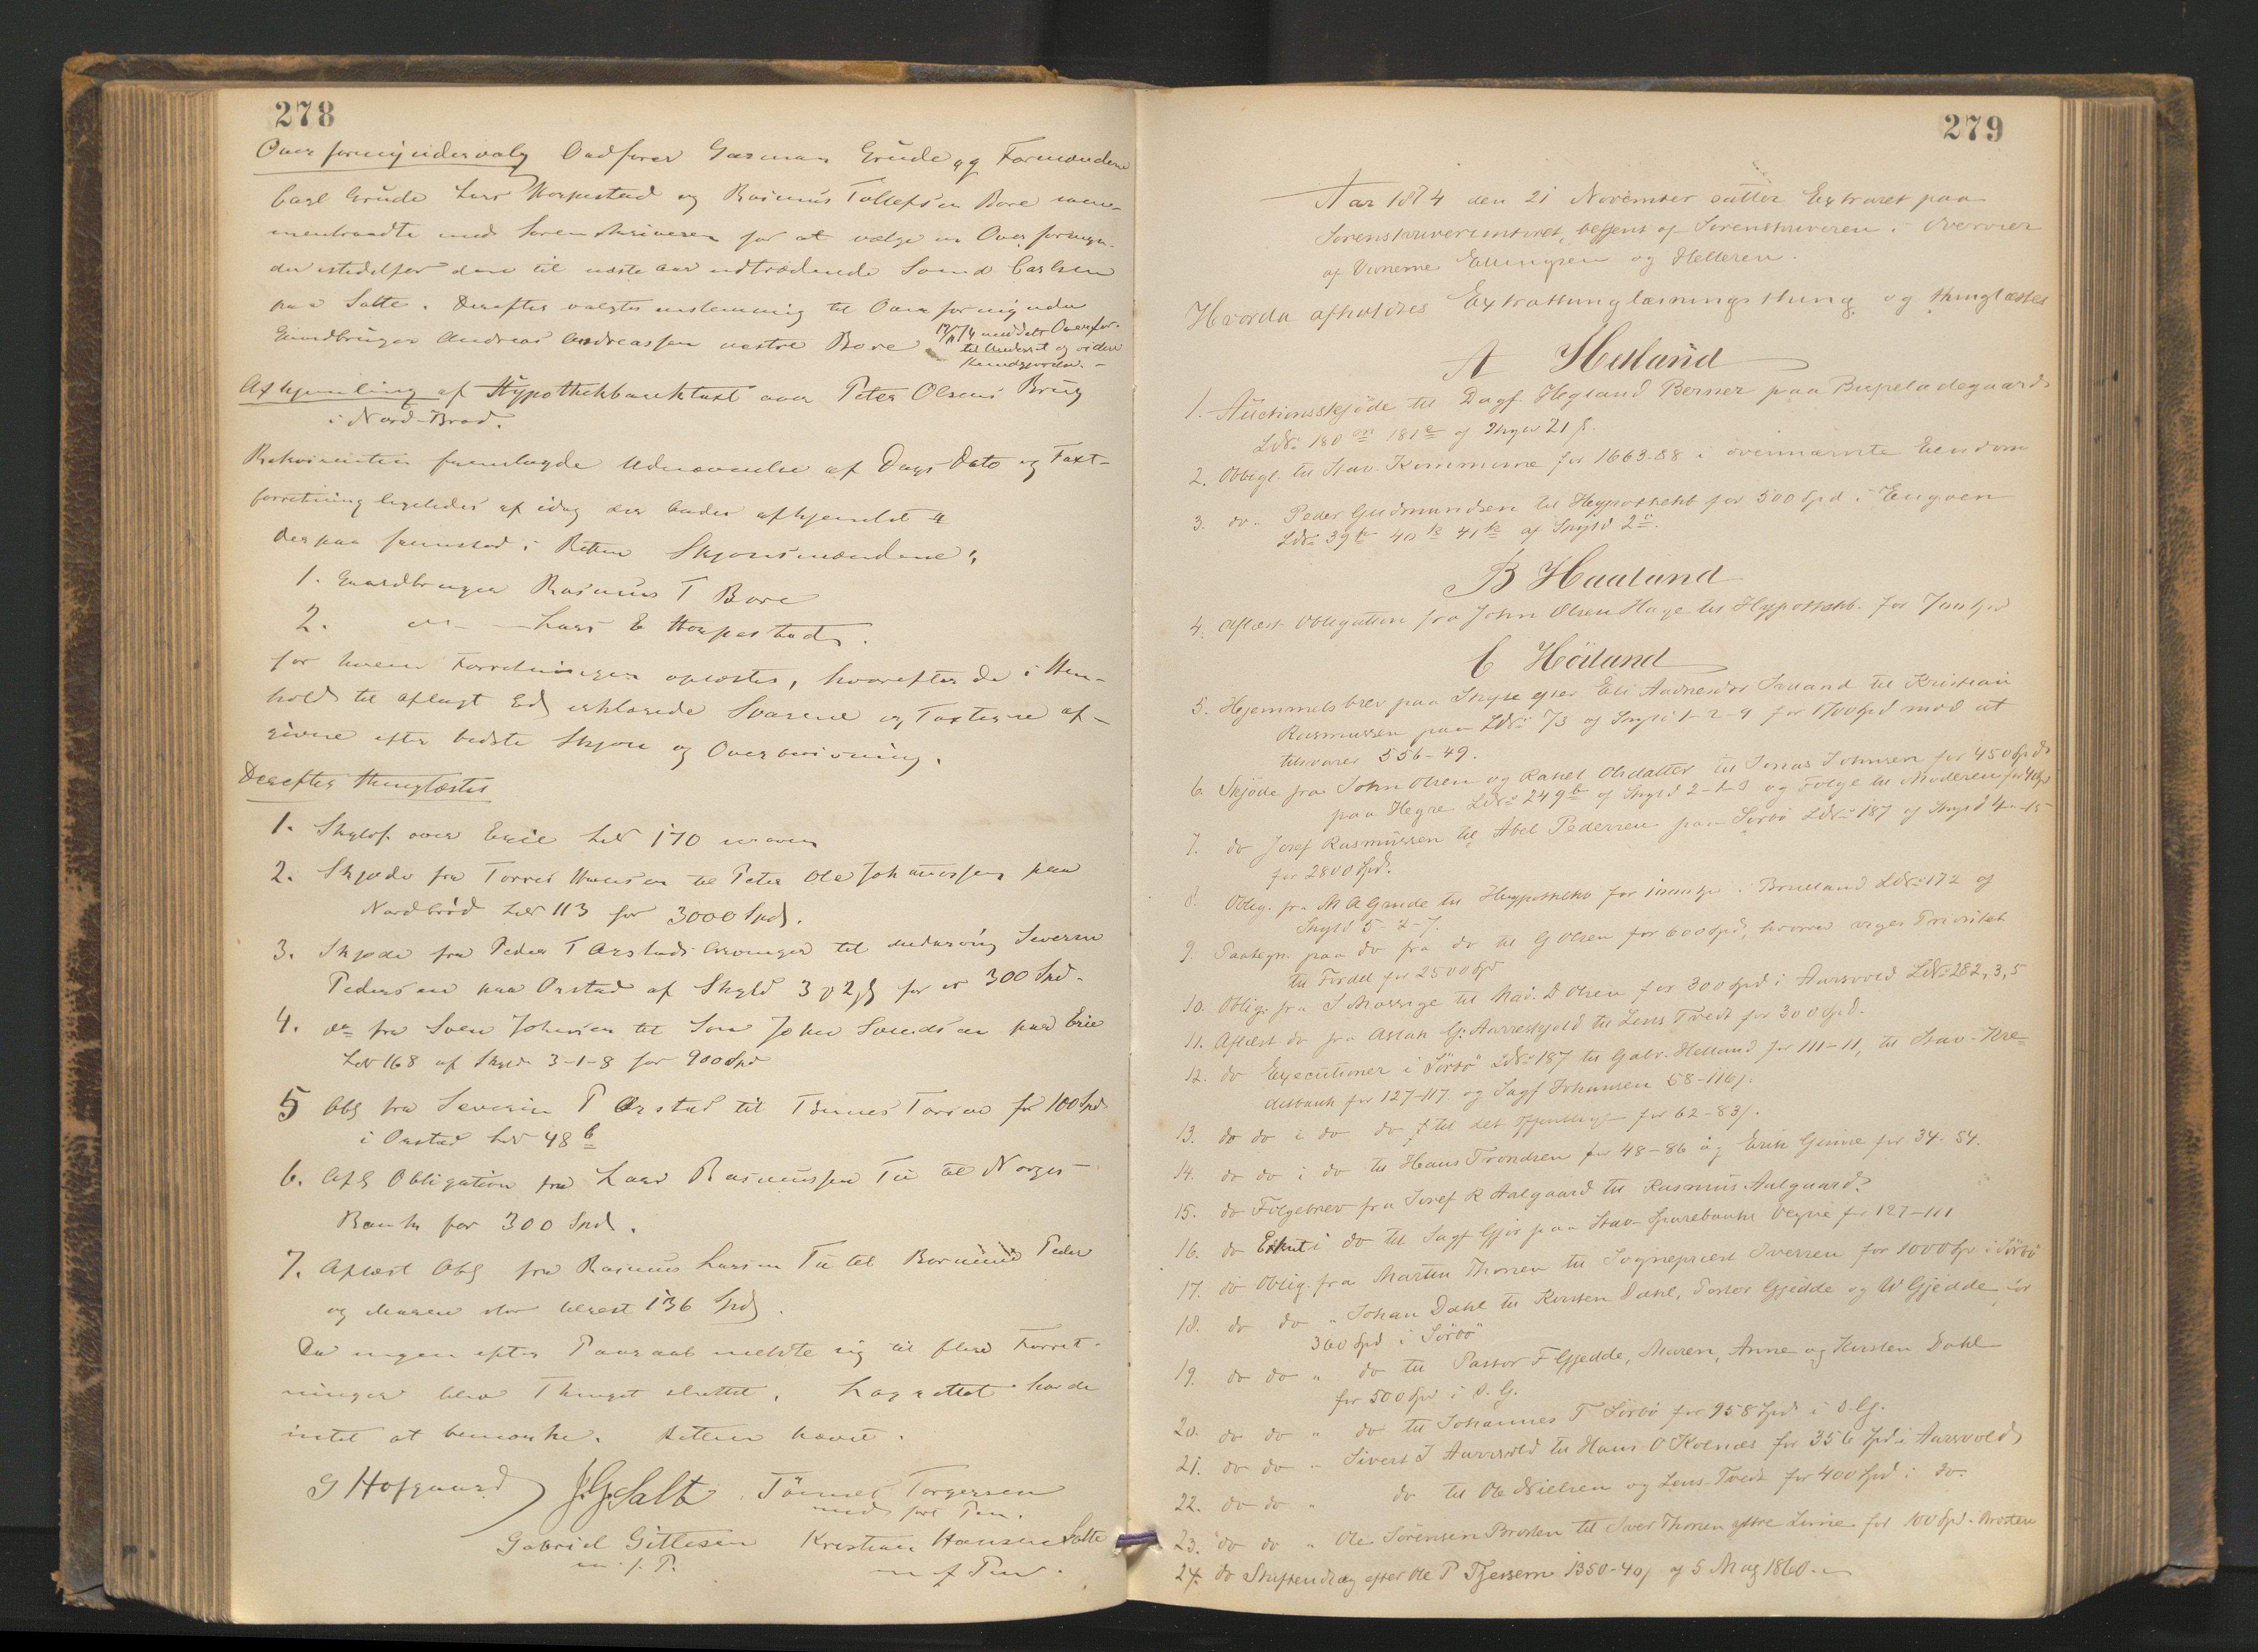 278
Overformyndervalg Ordfører Gasman Grude og Formændene
Carl Grude Lars Horpestad og Rasmus Tollefsen Bore sam-
mentraadte med Sorenskriveren for at vælge en Overformyn-
der istedetfor den til næste aar udtrædende Svend Carlsen
paa Salte. Derefter valgtes enstemmig til Overformynder
Gaardbruger Andreas Andreassen vestre Bore
meddelt Overfor.
til Underret og videre
Kundgjørelse. -
Afhjemling af Hypothekbanktaxt over Peter Olsens Brug
i Nord-Brød.
Rekvirenten fremlagde Udnævnelse af Dags Dato og Taxt-
forretning ligeledes af idag der bades afhjemlet
Derpaa fremstod i Retten Skjønsmændene:
1. Gaardbruger Rasmus T Bore
2. do - Lars E Horpestad.
for hvem Forretningen oplæstes, hvorefter de i Hen-
hold til aflagt Ed erklærede Svarene og Taxterne af-
givne efter bedste Skjøn og Overbevisning.
Derefter thinglæstes
1. Skyldf. over Erie LNr 170
2. Skjøde fra Torres Hansen til Peter Ole Johannessen paa
Nordbrød LNr 113 for 3000 Spd.
3. Skjøde fra Peder T Orstads Arvinger til Severin
Pedersen paa Orstad af Skyld 3 2 for 300 Spd.
4. do fra Sven Johnsen til Søn John Svendsen paa Erie
LNr 168 af Skyld 3-1-8 for 900 Spd
5 Obl fra Severin P Orstad til Tønnes for 100 Spd
i Orstad LNr 48 b
6. Afl Obligation fra Lars Rasmussen Tu til Norges
Bank for 300 Spd.
7. Aflæst Obl fra Rasmus Larsen Tu til Børnene Peder
og Maren stor 136 Spd.
Da ingen efter Paaraab meldte sig til flere Forret-
ninger blev Thinget sluttet. Lagrettet havde
intet at bemærke. Retten hævet.
G Hofgaard J.G. Salte Tönnes Torgersen
med ført Pen.
Gabriel Gitlesen Kristian Hansen Salte
m. f. P. m f Pen.
279
Aar 1874 den 21 November sattes Extraret paa
Sorenskrivercontoret, betjent af Sorenskriveren i Overvær
af Vidnerne Ellingsen og Helleren.
Hvorda afholdtes Extrathinglæsningsthing og thinglæstes
A Hetland
1. Auctionsskjöde til Dagf. Hegland Berner paa Bispeladegaards
LNr 180 181 af Skyld 21 ß.
2. Obligt. til Stav. Kommune for 1663-88 i ovennævnte Eiendom
3. do. Peder Gudmundsen til Hypothekb for 500 Spd i Engøen
LNr 39 40 41 af Skyld 2
B Haaland
4. Aflæst Obligation fra John Olsen Hage til Hypothekb. for 700 Spd
C Höiland
5. Hjemmelsbrev paa Skyse efter Eli Aadnesdtr til Kristian
Rasmussen paa LNr 73 af Skyld 1-2-9 for 1700 Spd mod at
tilsvarer 556-49.
6. Skjöde fra John Olsen og Rakel Olsdatter til Jonas Johnsen for 450 Spd
paa Hegre LNr 249b af Skyld 2-1-3 og Følge til Moderen for 40 Spd
7. do Josef Rasmussen til Abel Pedersen paa Sörbö LNr 187 af Skyld 4-15
for 2800 Spd.
8. Oblig. fra M A Grude til Hypothekb for 1000 Spd i Brueland LNr 172 af
Skyld 5-4-7.
9. Paategn. paa do fra do til G Olsen for 600 Spd, hvorved viges Prioritet
til Fordel for 2500 Spd
10. Oblig. fra S Mossige til Mad. D Olsen for 300 Spd i Aarsvold LNr 282, 3, 5
11. Aflæst do fra Aslak G. Aarreskjold til Lens Tvedt for 300 Spd.
12. do Executioner i Sörbö LNr 187 til Gabr. Helland for 111-11, til Stav. Kre-
ditbank for 127-117 og Sagf Johannsen 58-116.
13. do do i do do til det offentlige for 62-83.
14. do do i do til Hans Trondsen for 48-86 og Erik Grime for 34-54.
15. do Følgebrev fra Josef R Aalgaard til Rasmus Aalgaard.
16. do Exkut i do til Sagf Gjør paa Stav. Sparebanks Vegne for 127-111
17. do Oblig. fra Martin Thorsen til Sognepræst Iversen for 1000 Spd i Sörbö
18. do do " Johan Dahl til Kirsten Dahl, Pastor Gjedde og W Gjedde for
360 Spd i Sörbö
19. do do " do til Pastor F Gjedde, Maren, Anne og Kirsten Dahl
for 500 Spd i s. G.
20. do do " do til Johannes T Sörbö for 958 Spd i s. G.
21. do do " Sivert I Aarsvold til Hans O Kolnes for 356 Spd i Aarsvold
22. do do " do til Ole Nielsen og Lens Tvedt for 400 Spd i do.
23. do do " Ole Sørensen Brosten til Iver Thorsen ytre Lime for 100 Spd i Brosten
24. do Skifteudlæg efter Ole P Tjessem 1350-40 af 5 Maj 1860.